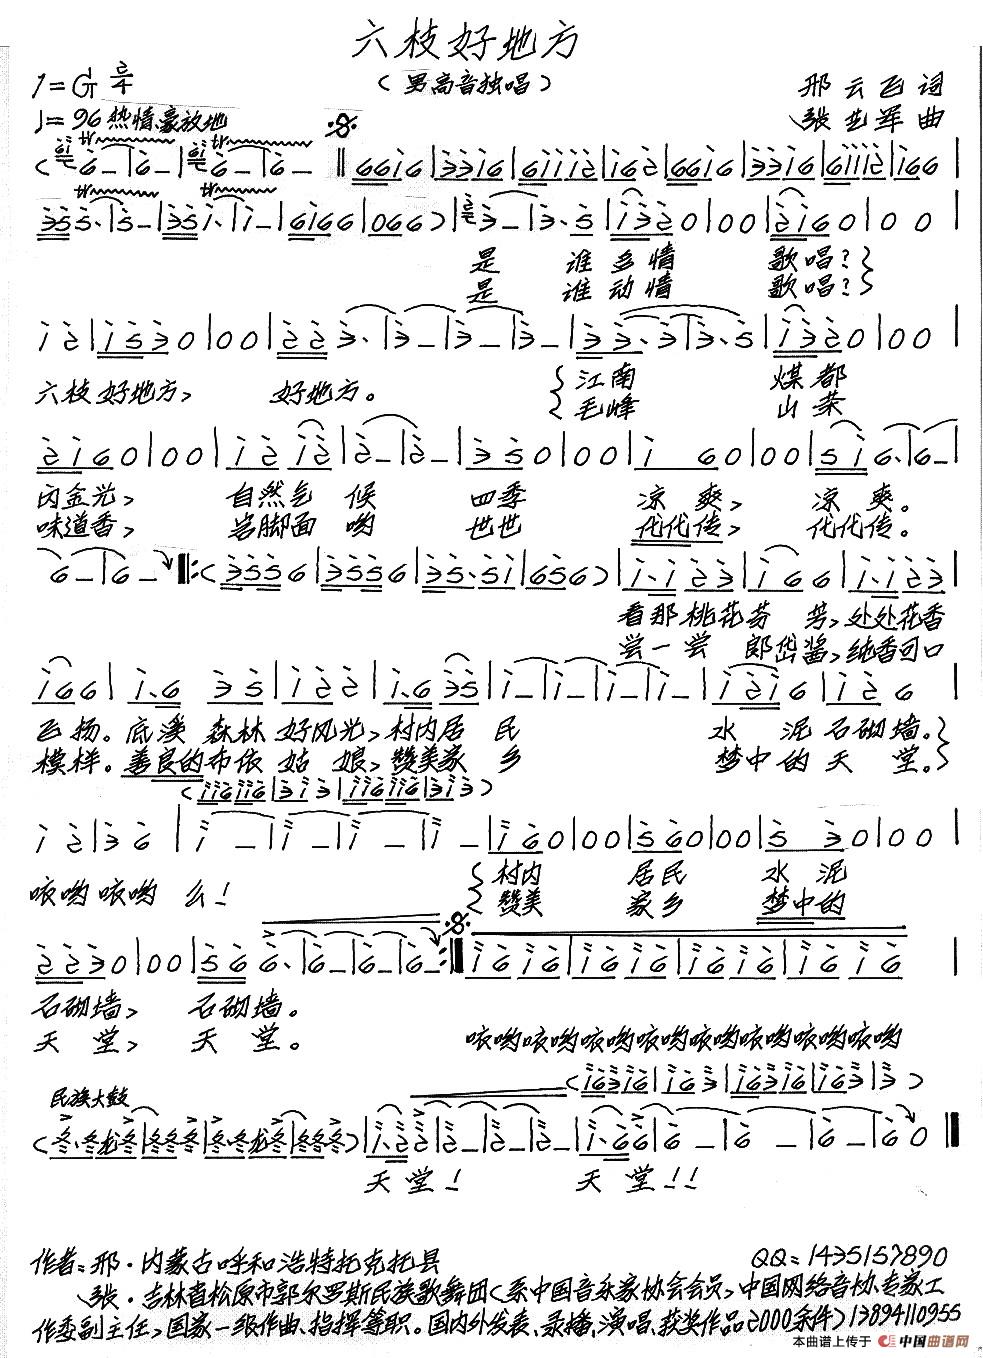 六枝好地方
1=G 2/4
（男高音独唱）
邢云飞 词
♩=96 热情豪放地
张艺军 曲
是 谁多情 歌唱？
是 谁动情 歌唱？
六枝好地方， 好地方。 江南 煤都
毛峰 山茶
闪金光， 自然气候 四季 凉爽， 凉爽。
味道香， 岩脚面哟 世世 代代传， 代代传。
看那桃花芬芳，处处花香
尝一尝 郎岱酱，纯香可口
飞扬。底溪森林好风光，村内居民 水泥石砌墙。
模样。善良的布依姑娘，赞美家乡 梦中的天堂。
哝哟哝哟么！ 村内 居民 水泥
赞美 家乡 梦中的
石砌墙， 石砌墙。
天堂， 天堂。 哝哟哝哟哝哟哝哟哝哟哝哟哝哟哝哟
民族大鼓
冬·冬龙冬 冬冬冬 冬·冬龙冬 冬冬冬
天堂！ 天堂！！
作者：邢·内蒙古呼和浩特托克托县 QQ：1435157890
张·吉林省松原市郭尔罗斯民族歌舞团（系中国音乐家协会会员，中国网络音协专家工
作委副主任，国家一级作曲、指挥等职。国内外发表、录播、演唱、获奖作品2000余件）13894110955
本曲谱上传于 中国曲谱网